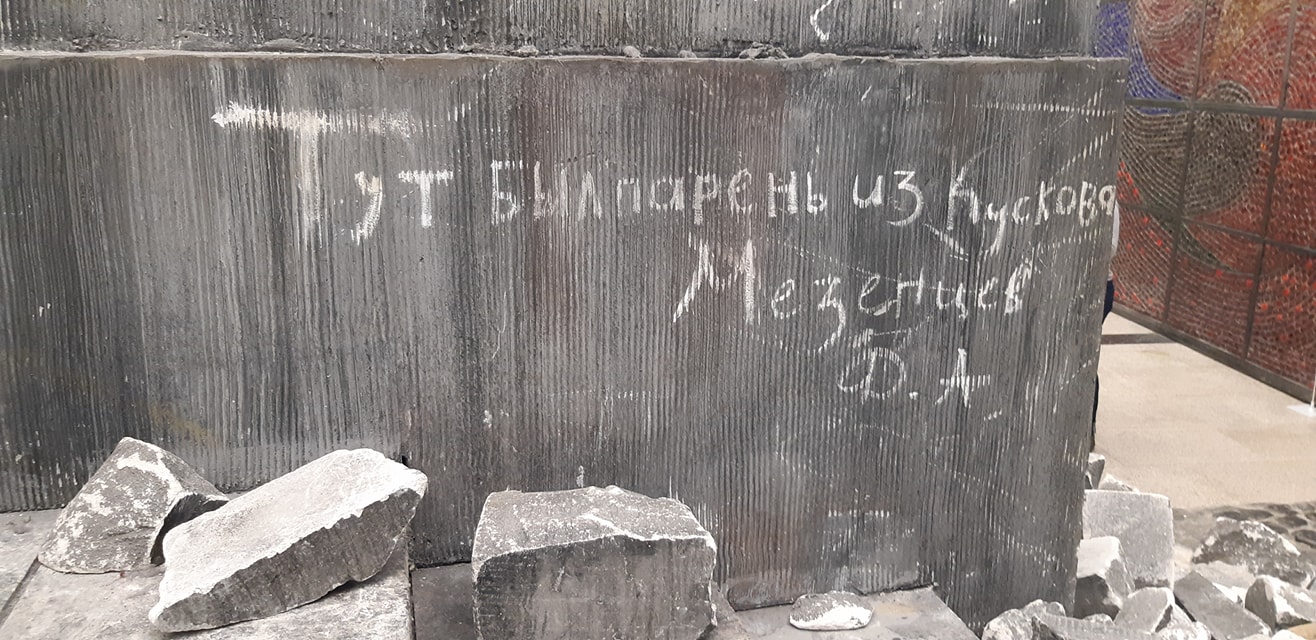 Тут был парень из Кускова
Мезенцев
Ф. А.